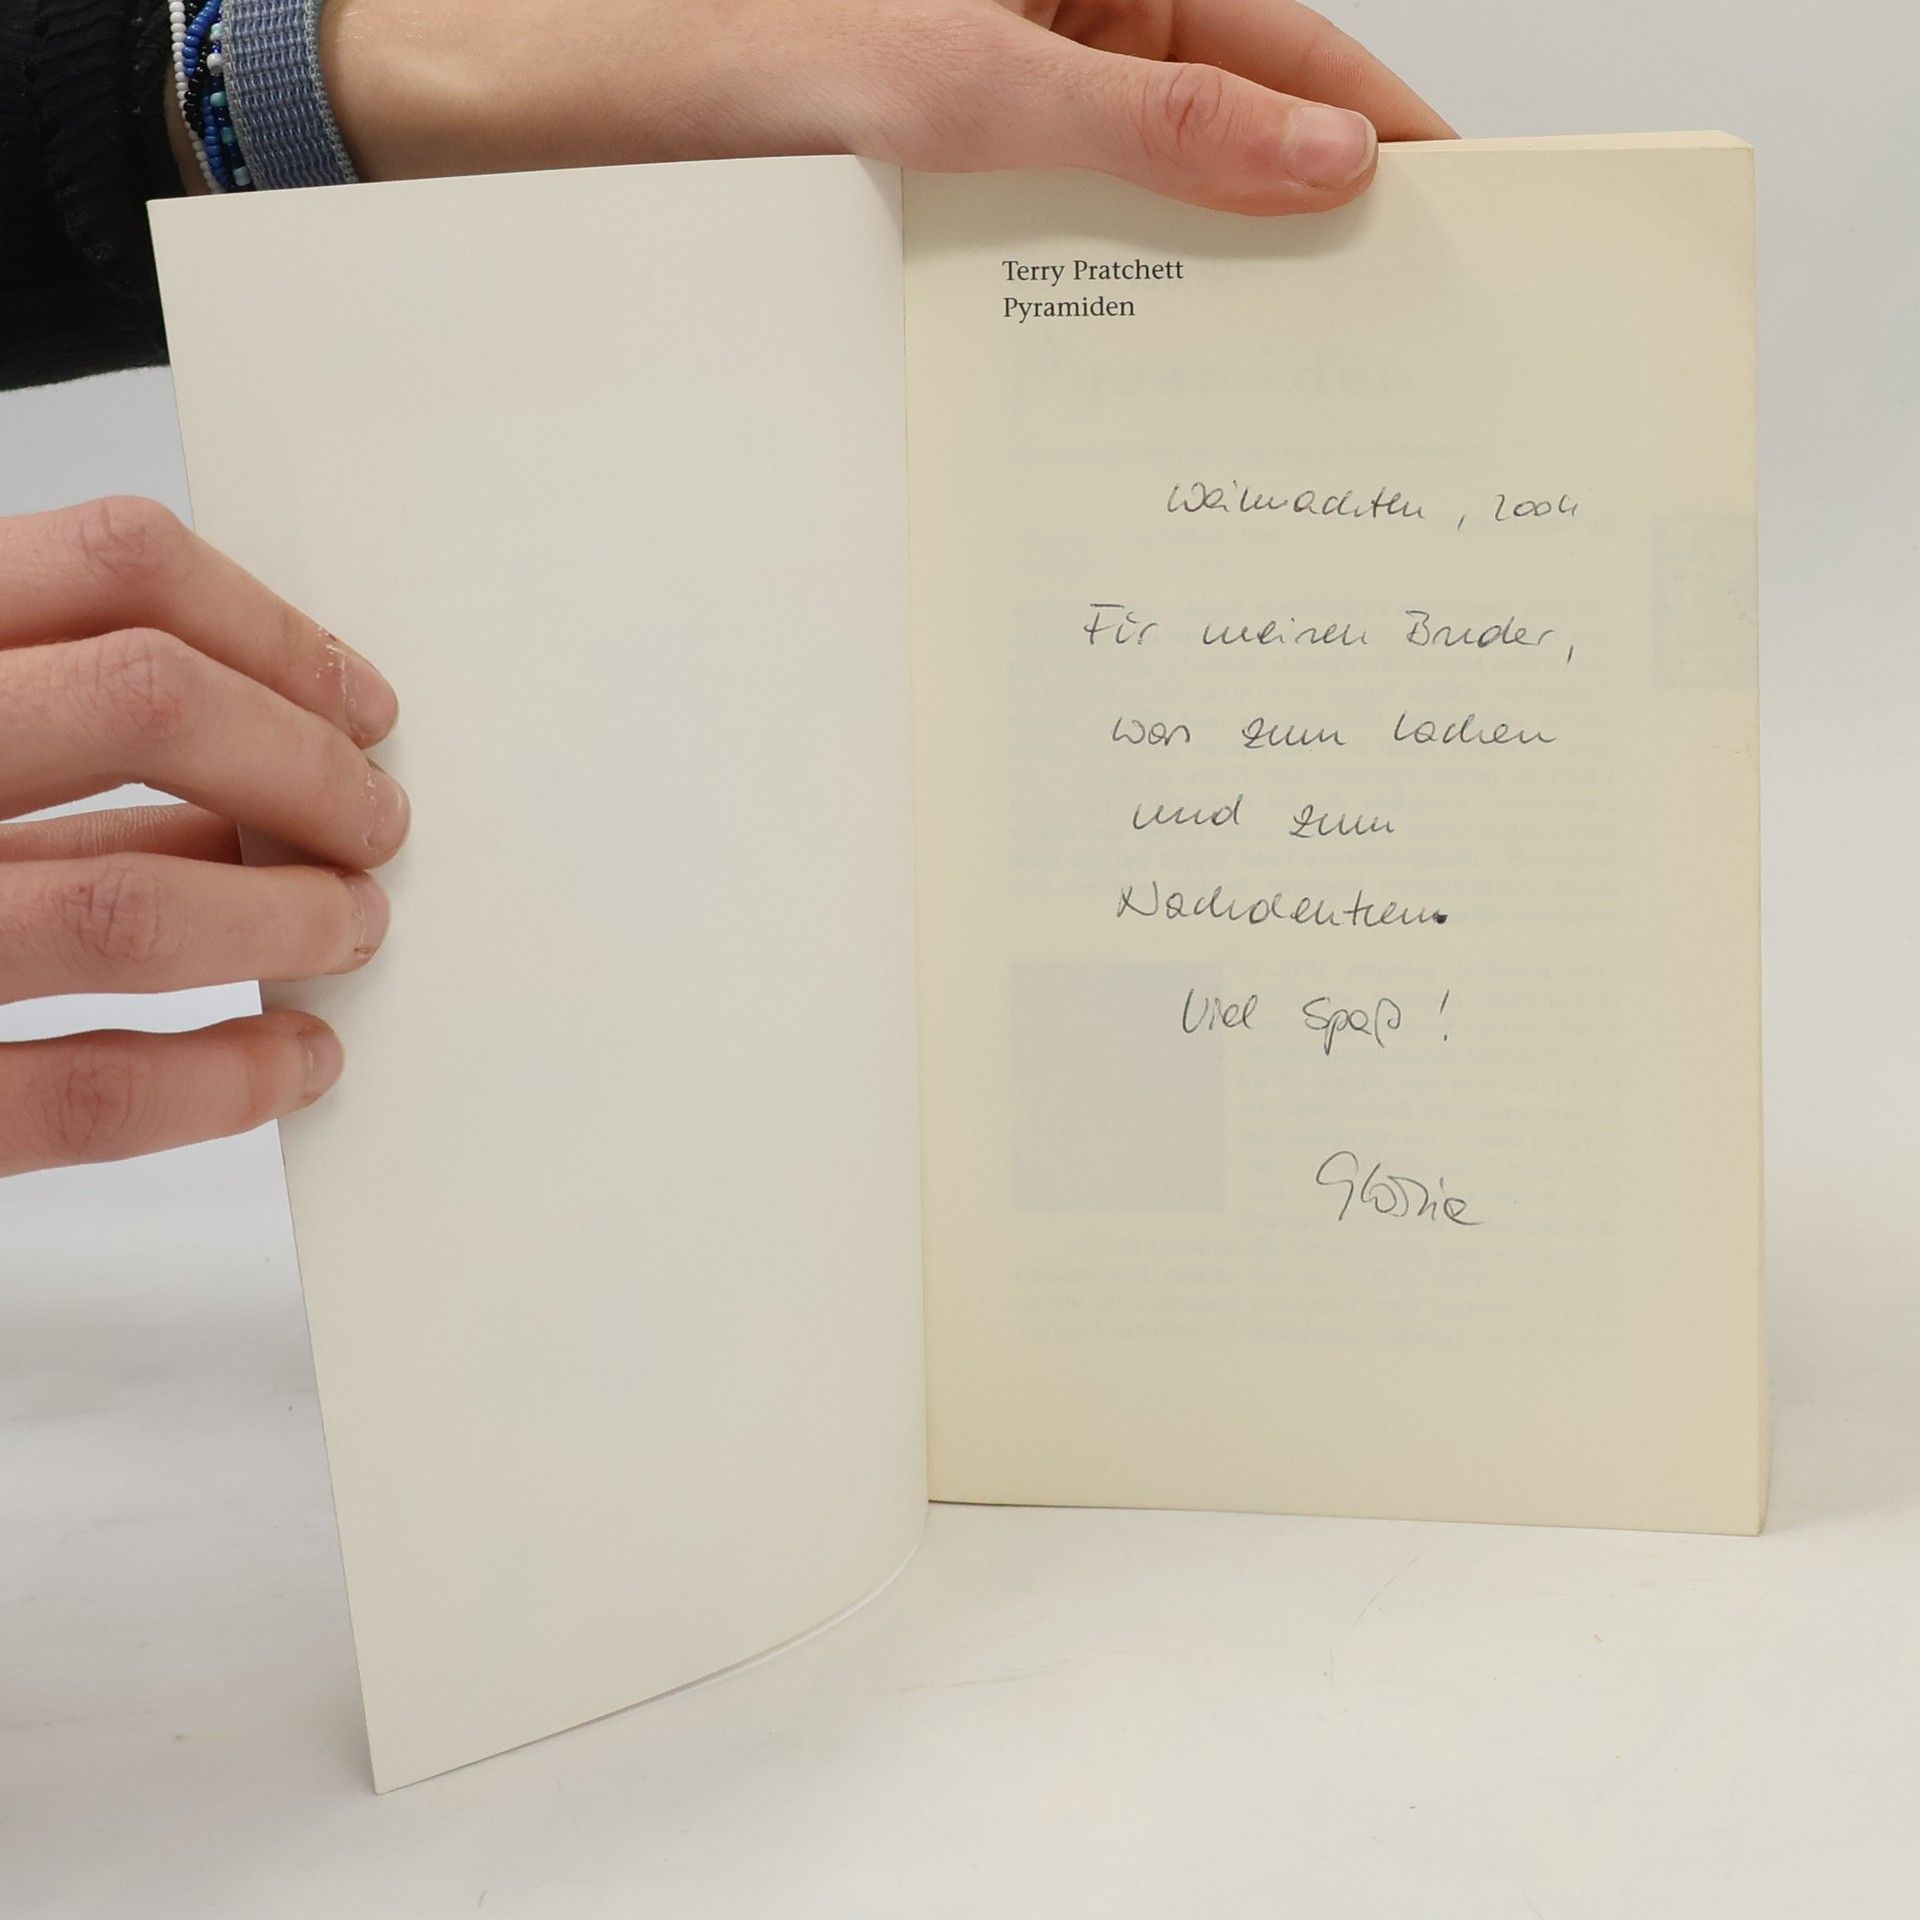 Terry Pratchett
Pyramiden
Weihnachten, 2004
Für meinen Bruder,
was zum Lachen
und zum
Nachdenken.
Viel Spaß!
Gloria